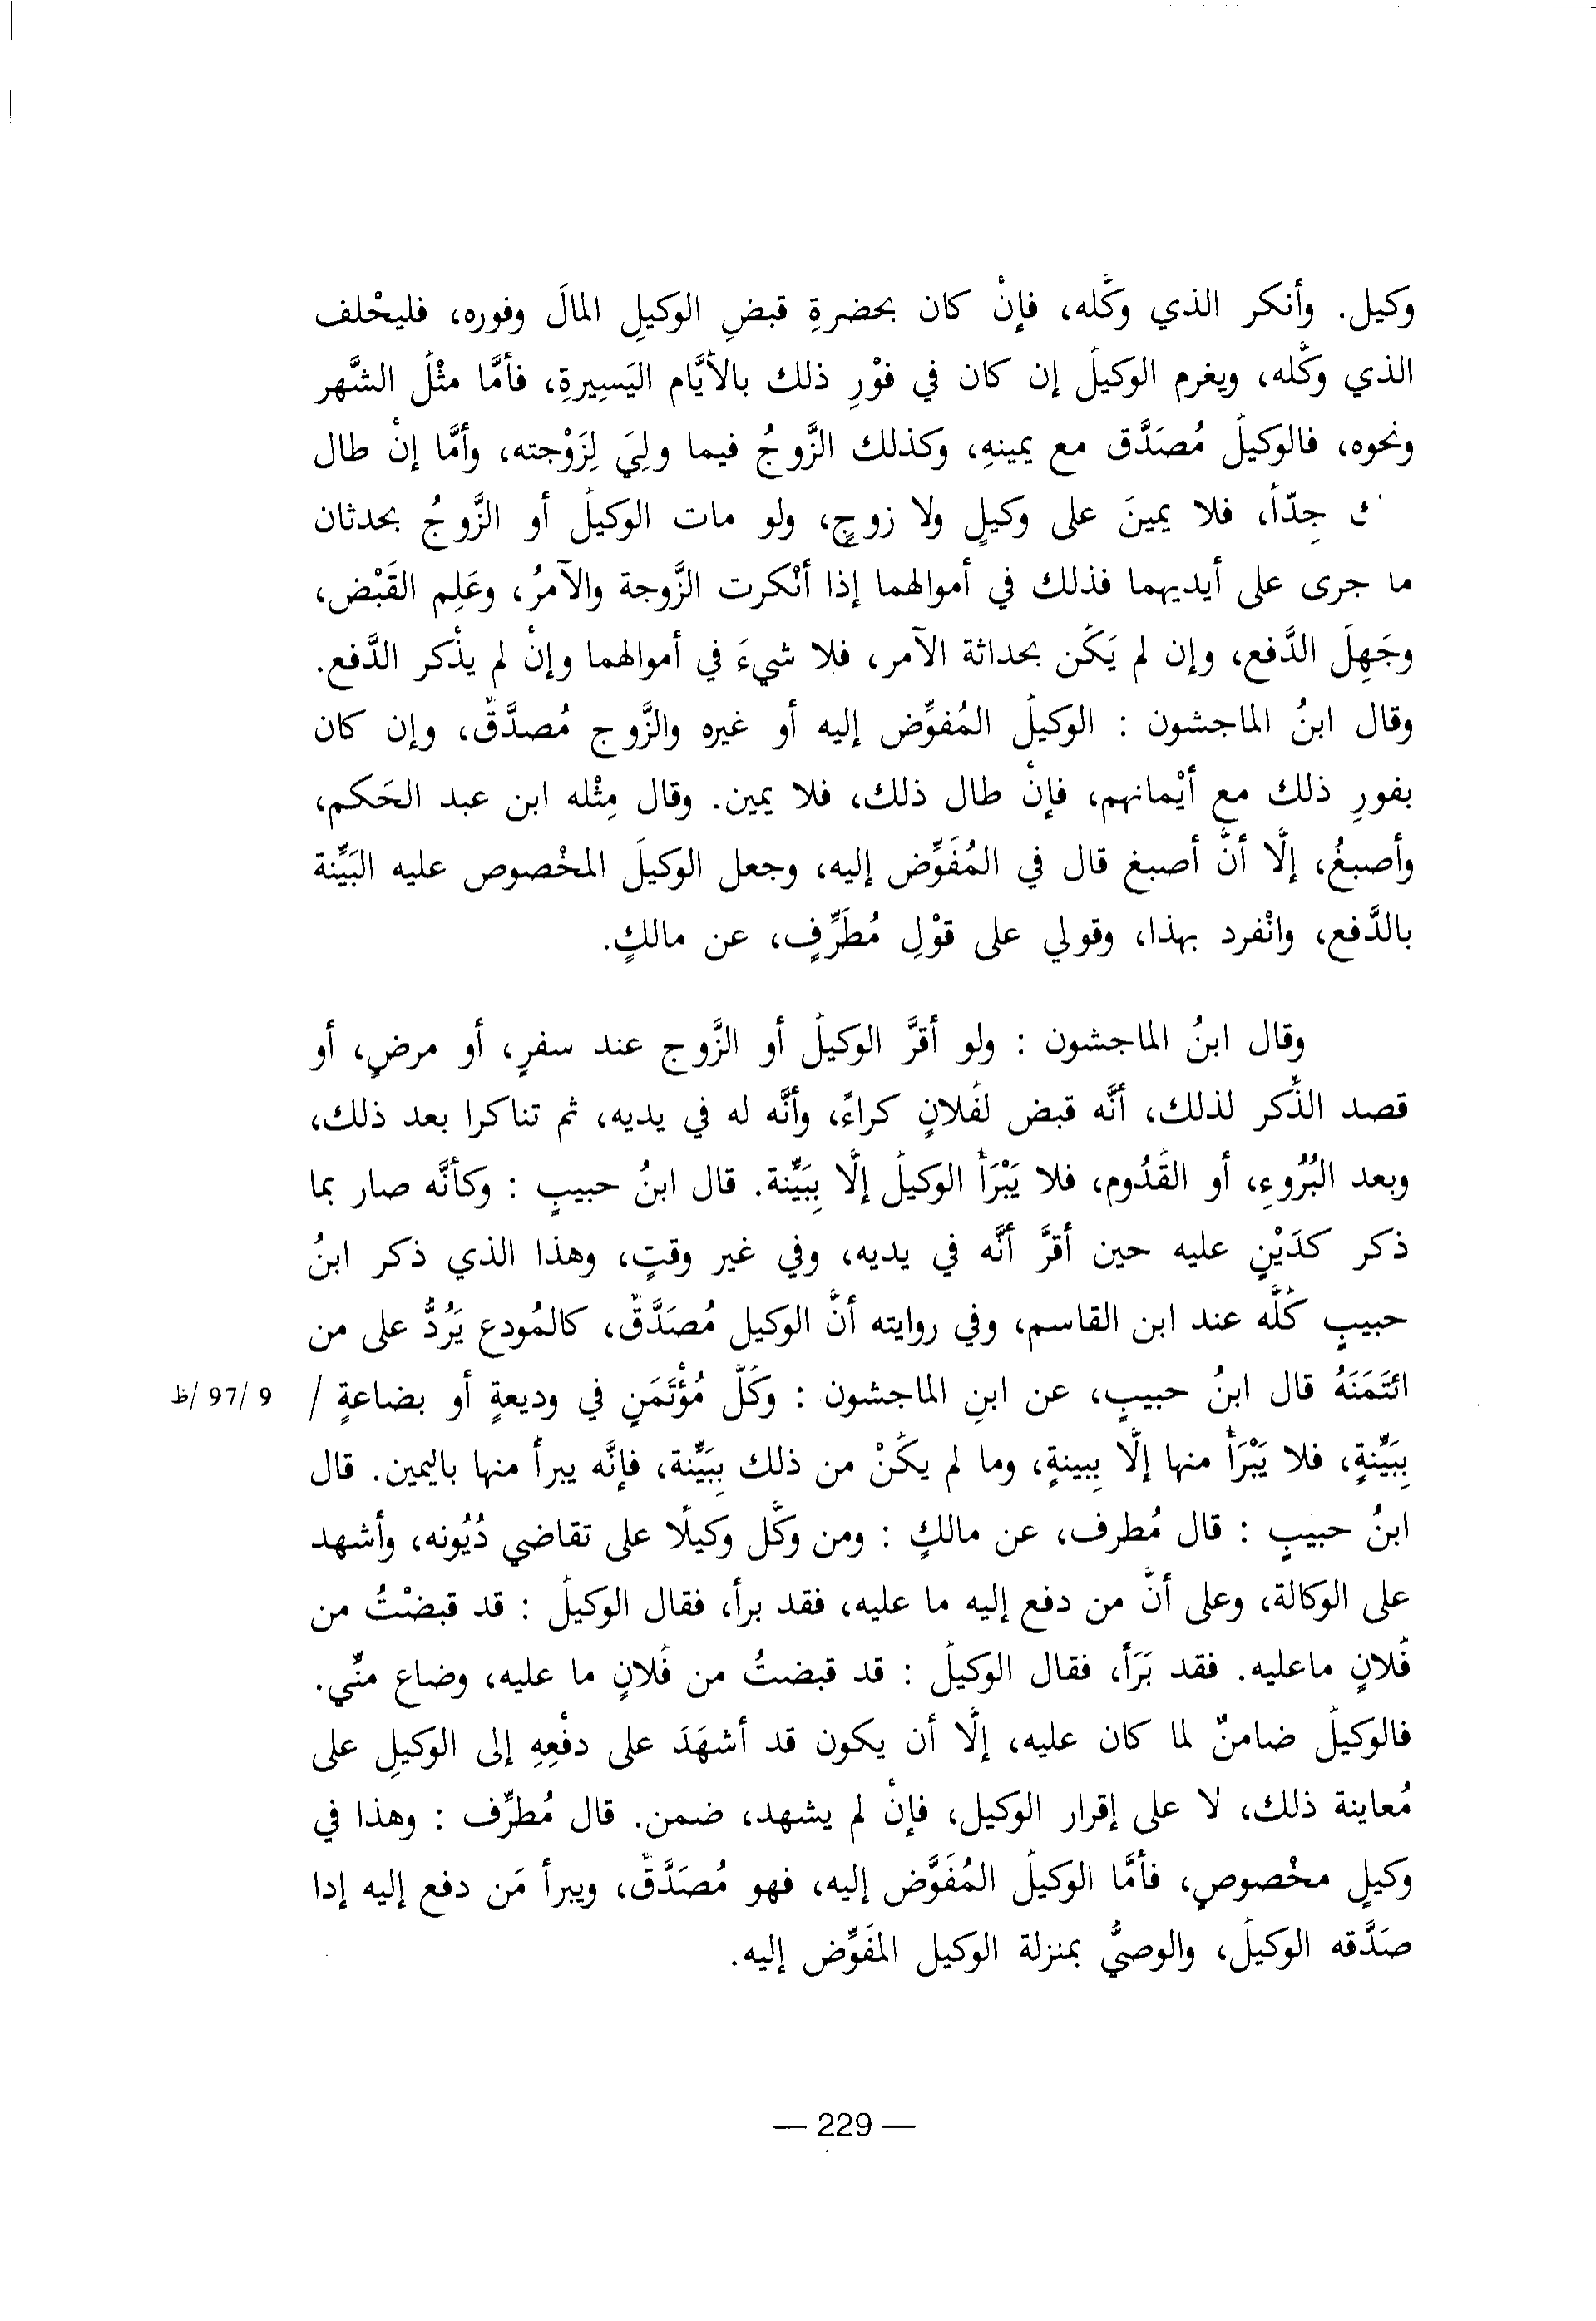 وكيل. وأنكر الذي وكَّله، فإنْ كان بحضرةِ قبضِ الوكيلِ المالَ وفوره، فليحْلف
الذي وكَّله، ويغرم الوكيلُ إن كان في فوْرِ ذلك بالأيَّام اليَسِيرةِ، فأمَّا مثْلُ الشَّهر
ونحوه، فالوكيلُ مُصَدَّق مع يمينهِ، وكذلك الزَّوجُ فيما ولِيَ لِزَوْجته، وأمَّا إنْ طال
جِدّاً، فلا يمينَ على وكيلٍ ولا زوجٍ، ولو مات الوكيلُ أو الزَّوجُ بحدثان
ما جرى على أيديهما فذلك في أموالهما إذا أنْكرت الزَّوجة والآمرُ، وعَلِم القَبْض،
وجَهِلَ الدَّفع، وإن لم يَكُن بحداثة الآمر، فلا شيءَ في أموالهما وإنْ لم يذْكر الدَّفع.
وقال ابنُ الماجشون : الوكيلُ المُفوِّض إليه أو غيره والزَّوج مُصدَّقٌ، وإن كان
بفورِ ذلك مع أيْمانهم، فإنْ طال ذلك، فلا يمين. وقال مِثْله ابن عبد الحَكم،
وأصبغُ، إلَّا أنَّ أصبغ قال في المُفَوِّض إليه، وجعل الوكيلَ المخْصوص عليه البَيِّنة
بالدَّفع، وانْفرد بهذا، وقولي على قوْلِ مُطَرِّفٍ، عن مالكٍ.
وقال ابنُ الماجشون : ولو أقرَّ الوكيلُ أو الزَّوج عند سفرٍ، أو مرضٍ، أو
قصد الذِّكر لذلك، أنَّه قبض لفُلانٍ كراءً، وأنَّه له في يديه، ثم تناكرا بعد ذلك،
وبعد البُرُوءِ، أو القُدُوم، فلا يَبْرَأُ الوكيلُ إلَّا بِبَيِّنة. قال ابنُ حبيبٍ : وكأنَّه صار بما
ذكر كدَيْنٍ عليه حين أقرَّ أنَّه في يديه، وفي غير وقتٍ، وهذا الذي ذكر ابنُ
حبيبٍ كُلَّه عند ابن القاسم، وفي روايته أنَّ الوكيل مُصَدَّقٌ، كالمُودع يَرُدُّ على من
ائتَمَنَهُ قال ابنُ حبيبٍ، عن ابنِ الماجشون : وكُلُّ مُؤْتَمَنٍ في وديعةٍ أو بضاعةٍ / 9 /97 /ظ
بِبَيِّنةٍ، فلا يَبْرَأُ منها إلَّا بِبينةٍ، وما لم يكُنْ من ذلك بِبَيِّنة، فإنَّه يبرأ منها باليمين. قال
ابنُ حبيبٍ : قال مُطرف، عن مالكٍ : ومن وكَّل وكيلًا على تقاضي دُيُونه، وأشهد
على الوكالة، وعلى أنَّ من دفع إليه ما عليه، فقد برأ، فقال الوكيلُ : قد قبضْتُ من
فُلانٍ ماعليه. فقد بَرَأَ، فقال الوكيلُ : قد قبضتُ من فُلانٍ ما عليه، وضاع منِّي.
فالوكيلُ ضامنٌ لما كان عليه، إلَّا أن يكون قد أشهَدَ على دفْعِهِ إلى الوكيلِ على
مُعاينة ذلك، لا على إقرار الوكيل، فإنْ لم يشهد، ضمن. قال مُطرِّف : وهذا في
وكيلٍ مخْصوصٍ، فأمَّا الوكيلُ المُفَوَّض إليه، فهو مُصَدَّقٌ، ويبرأ مَن دفع إليه إدا
صَدَّقه الوكيلُ، والوصيُّ بمنزلة الوكيل المفَوِّض إليه.
— 229 —